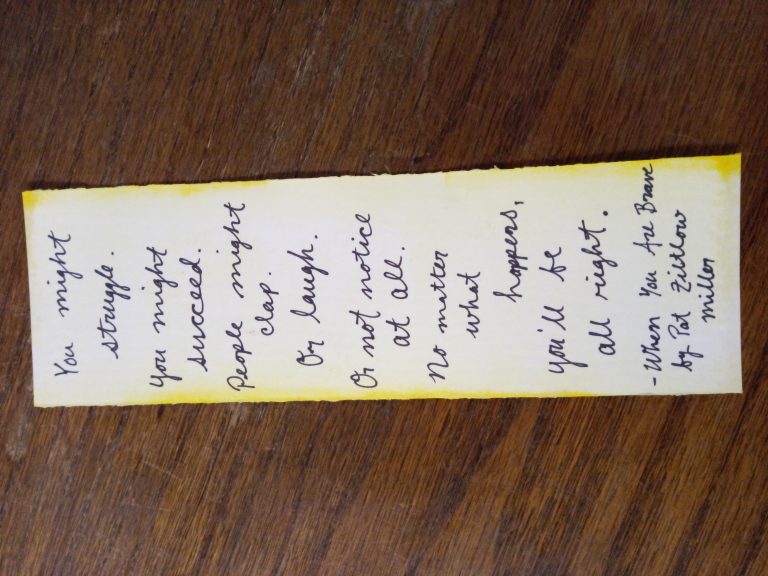 You might
struggle.
You might
succeed.
People might
clap.
Or laugh.
Or not notice
at all.
No matter
what
happens,
you'll be
all right.
-When You Are Brave
by Pat Zietlow
Miller